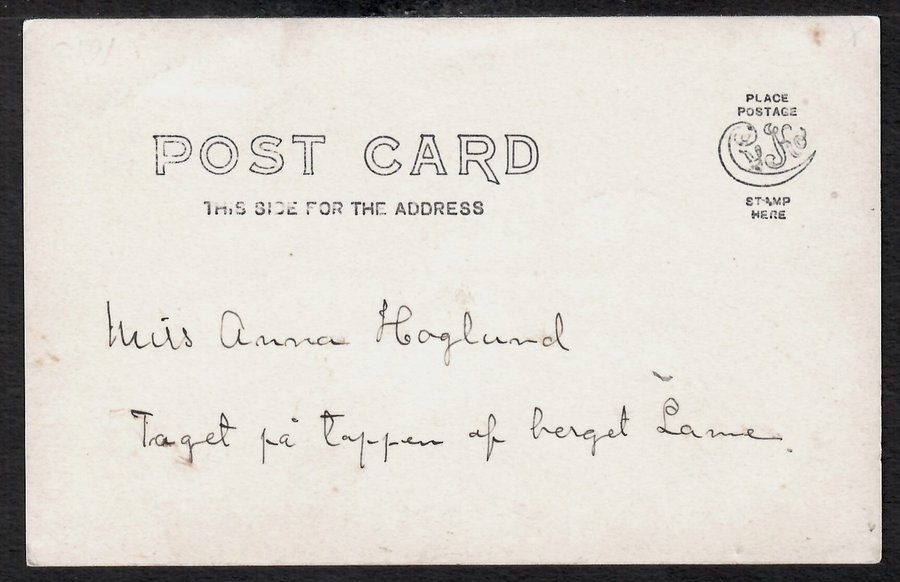 PLACE
POSTAGE
POST CARD
THIS SIDE FOR THE ADDRESS
STAMP
HERE
Miss Anna Hoglund
Taget på toppen af berget Lame.